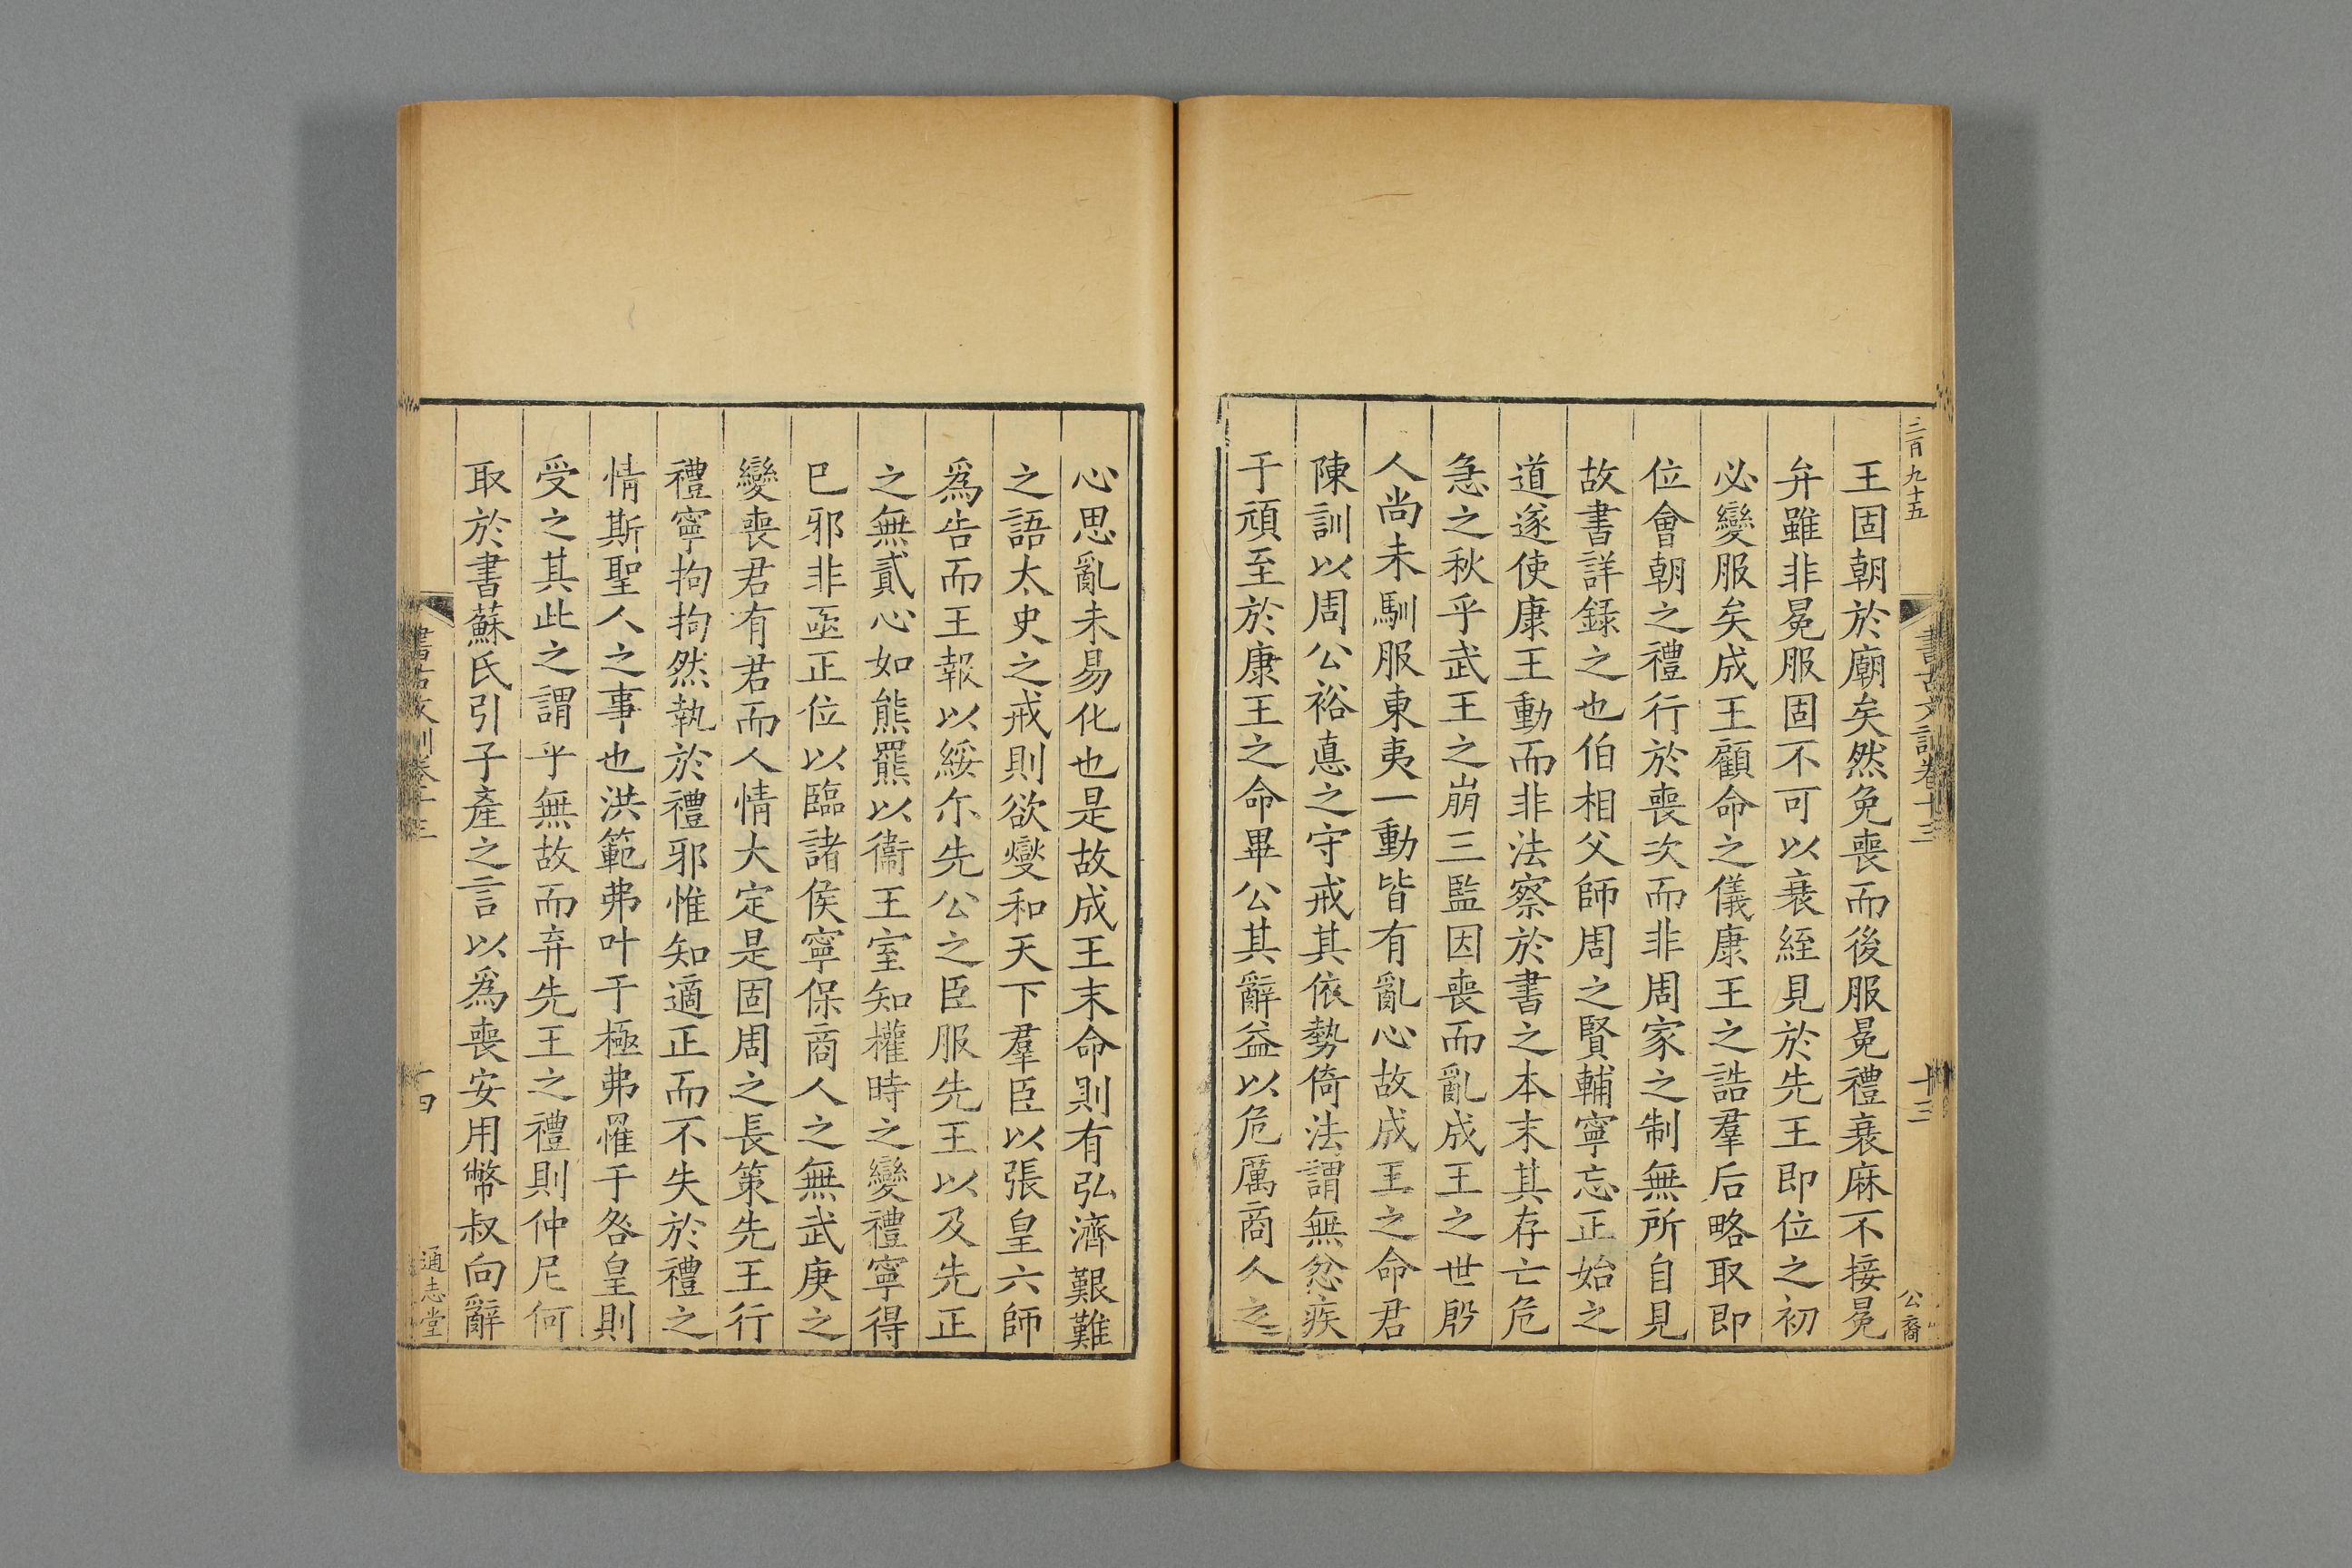 三百九十五
書古文訓卷十三
十三
公裔
王固朝於廟矣然免喪而後服冕禮衰麻不接冕
弁雖非冕服固不可以衰絰見於先王即位之初
必變服矣成王顧命之儀康王之誥羣后略取即
位會朝之禮行於喪次而非周家之制無所自見
故書詳録之也伯相父師周之賢輔寧忘正始之
道遂使康王動而非法察於書之本末其存亡危
急之秋乎武王之崩三監因喪而亂成王之世殷
人尚未馴服東夷一動皆有亂心故成王之命君
陳訓以周公裕悳之守戒其依勢倚法謂無忿疾
于頑至於康王之命畢公其辭益以危厲商人之
心思亂未易化也是故成王末命則有弘濟艱難
之語太史之戒則欲燮和天下羣臣以張皇六師
爲告而王報以綏尒先公之臣服先王以及先正
之無貳心如熊羆以衞王室知權時之變禮寧得
已邪非亟正位以臨諸侯寧保商人之無武庚之
變喪君有君而人情大定是固周之長策先王行
禮寧拘拘然執於禮邪惟知適正而不失於禮之
情斯聖人之事也洪範弗叶于極弗罹于咎皇則
受之其此之謂乎無故而弃先王之禮則仲尼何
取於書蘇氏引子產之言以爲喪安用幣叔向辭
書古文訓卷十三
十四
通志堂